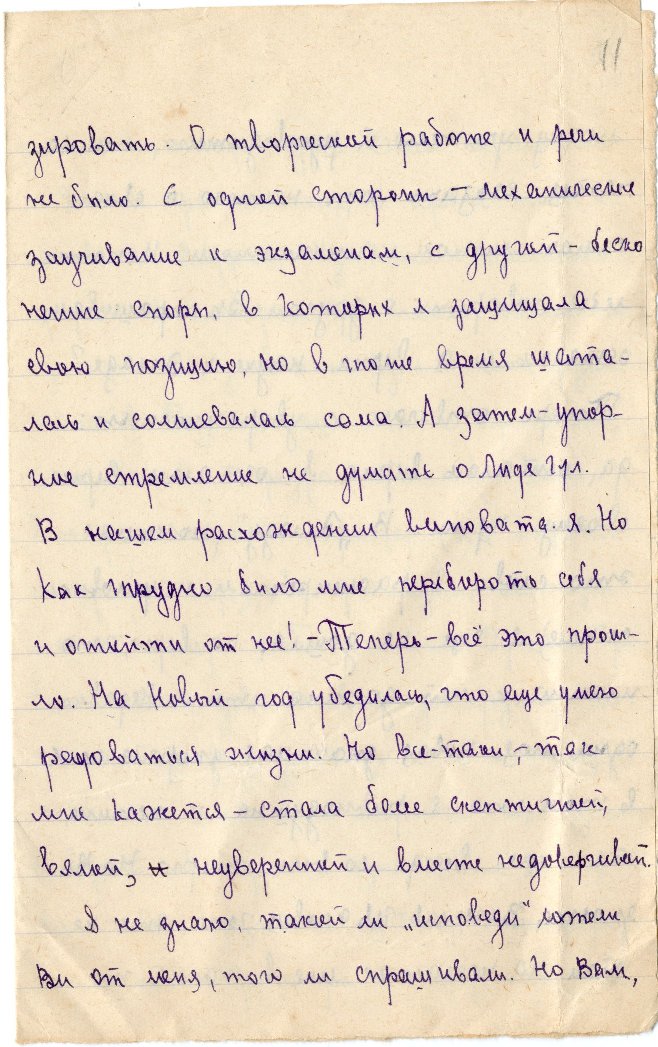 11
зировать. О творческой работе и речи
не было. С одной стороны – механическое
заучивание к экзаменам, с другой – беско
нечные споры, в которых я защищала
свою позицию, но в то же время шата-
лась и сомневалась сама. А затем – упор-
ное стремление не думать о Лиде Гул.
В нашем расхождении виновата – я. Но
как трудно было мне перебороть себя
и отойти от нее! – Теперь – всё это прош-
ло. На Новый год убедилась, что еще умею
радоваться жизни. Но все-таки, – так
мне кажется – стала более скептичной,
вялой, неуверенной и вместе недоверчивой.
Я не знаю, такой ли „исповеди“ хотели
Вы от меня, того ли спрашивали. Но Вам,